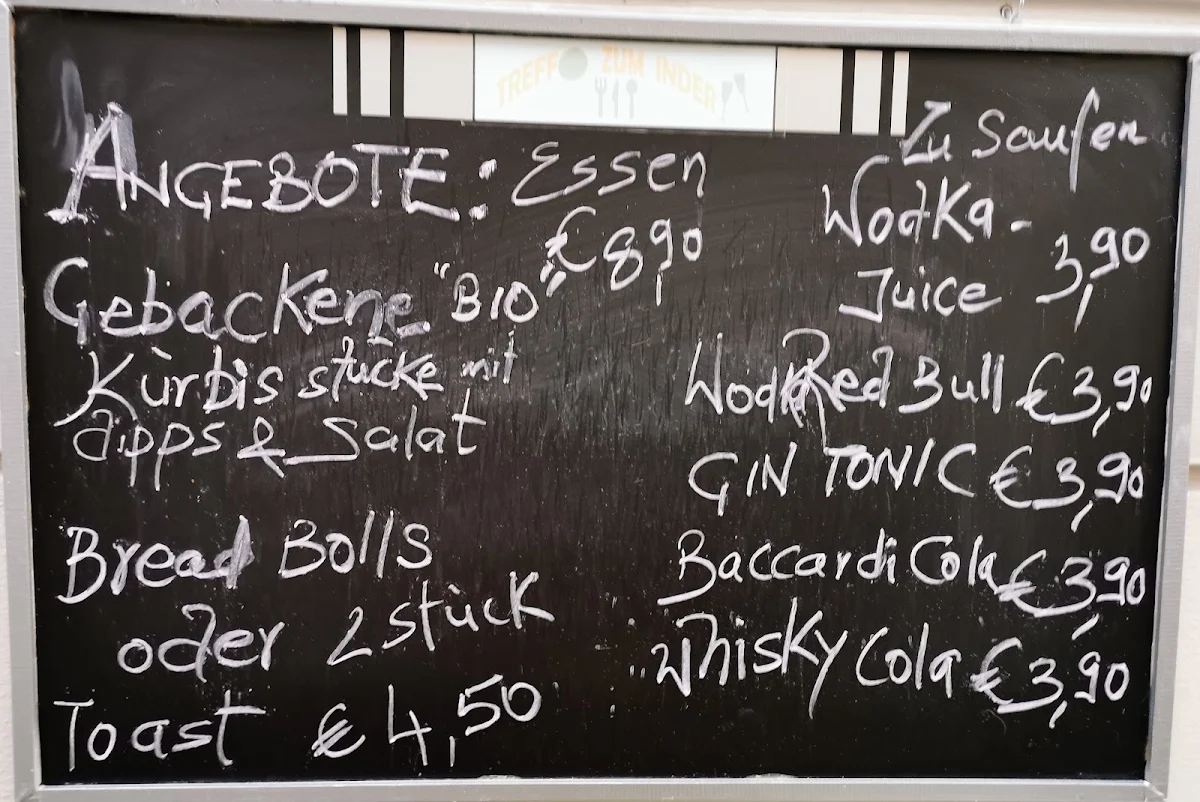 TREFF ZUM INDER
ANGEBOTE: Essen
€ 8,90
Gebackene "BIO"
Kürbis stücke mit
dipps & Salat
Bread Bolls
oder 2 stück
Toast € 4,50
Zu Saufen
Wodka -
Juice 3,90
Wodka Red Bull € 3,90
GIN TONIC € 3,90
Baccardi Cola € 3,90
Whisky Cola € 3,90